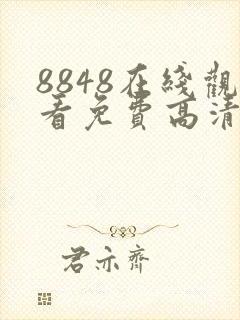 8848在綫觀
看免費高清
君亦齊